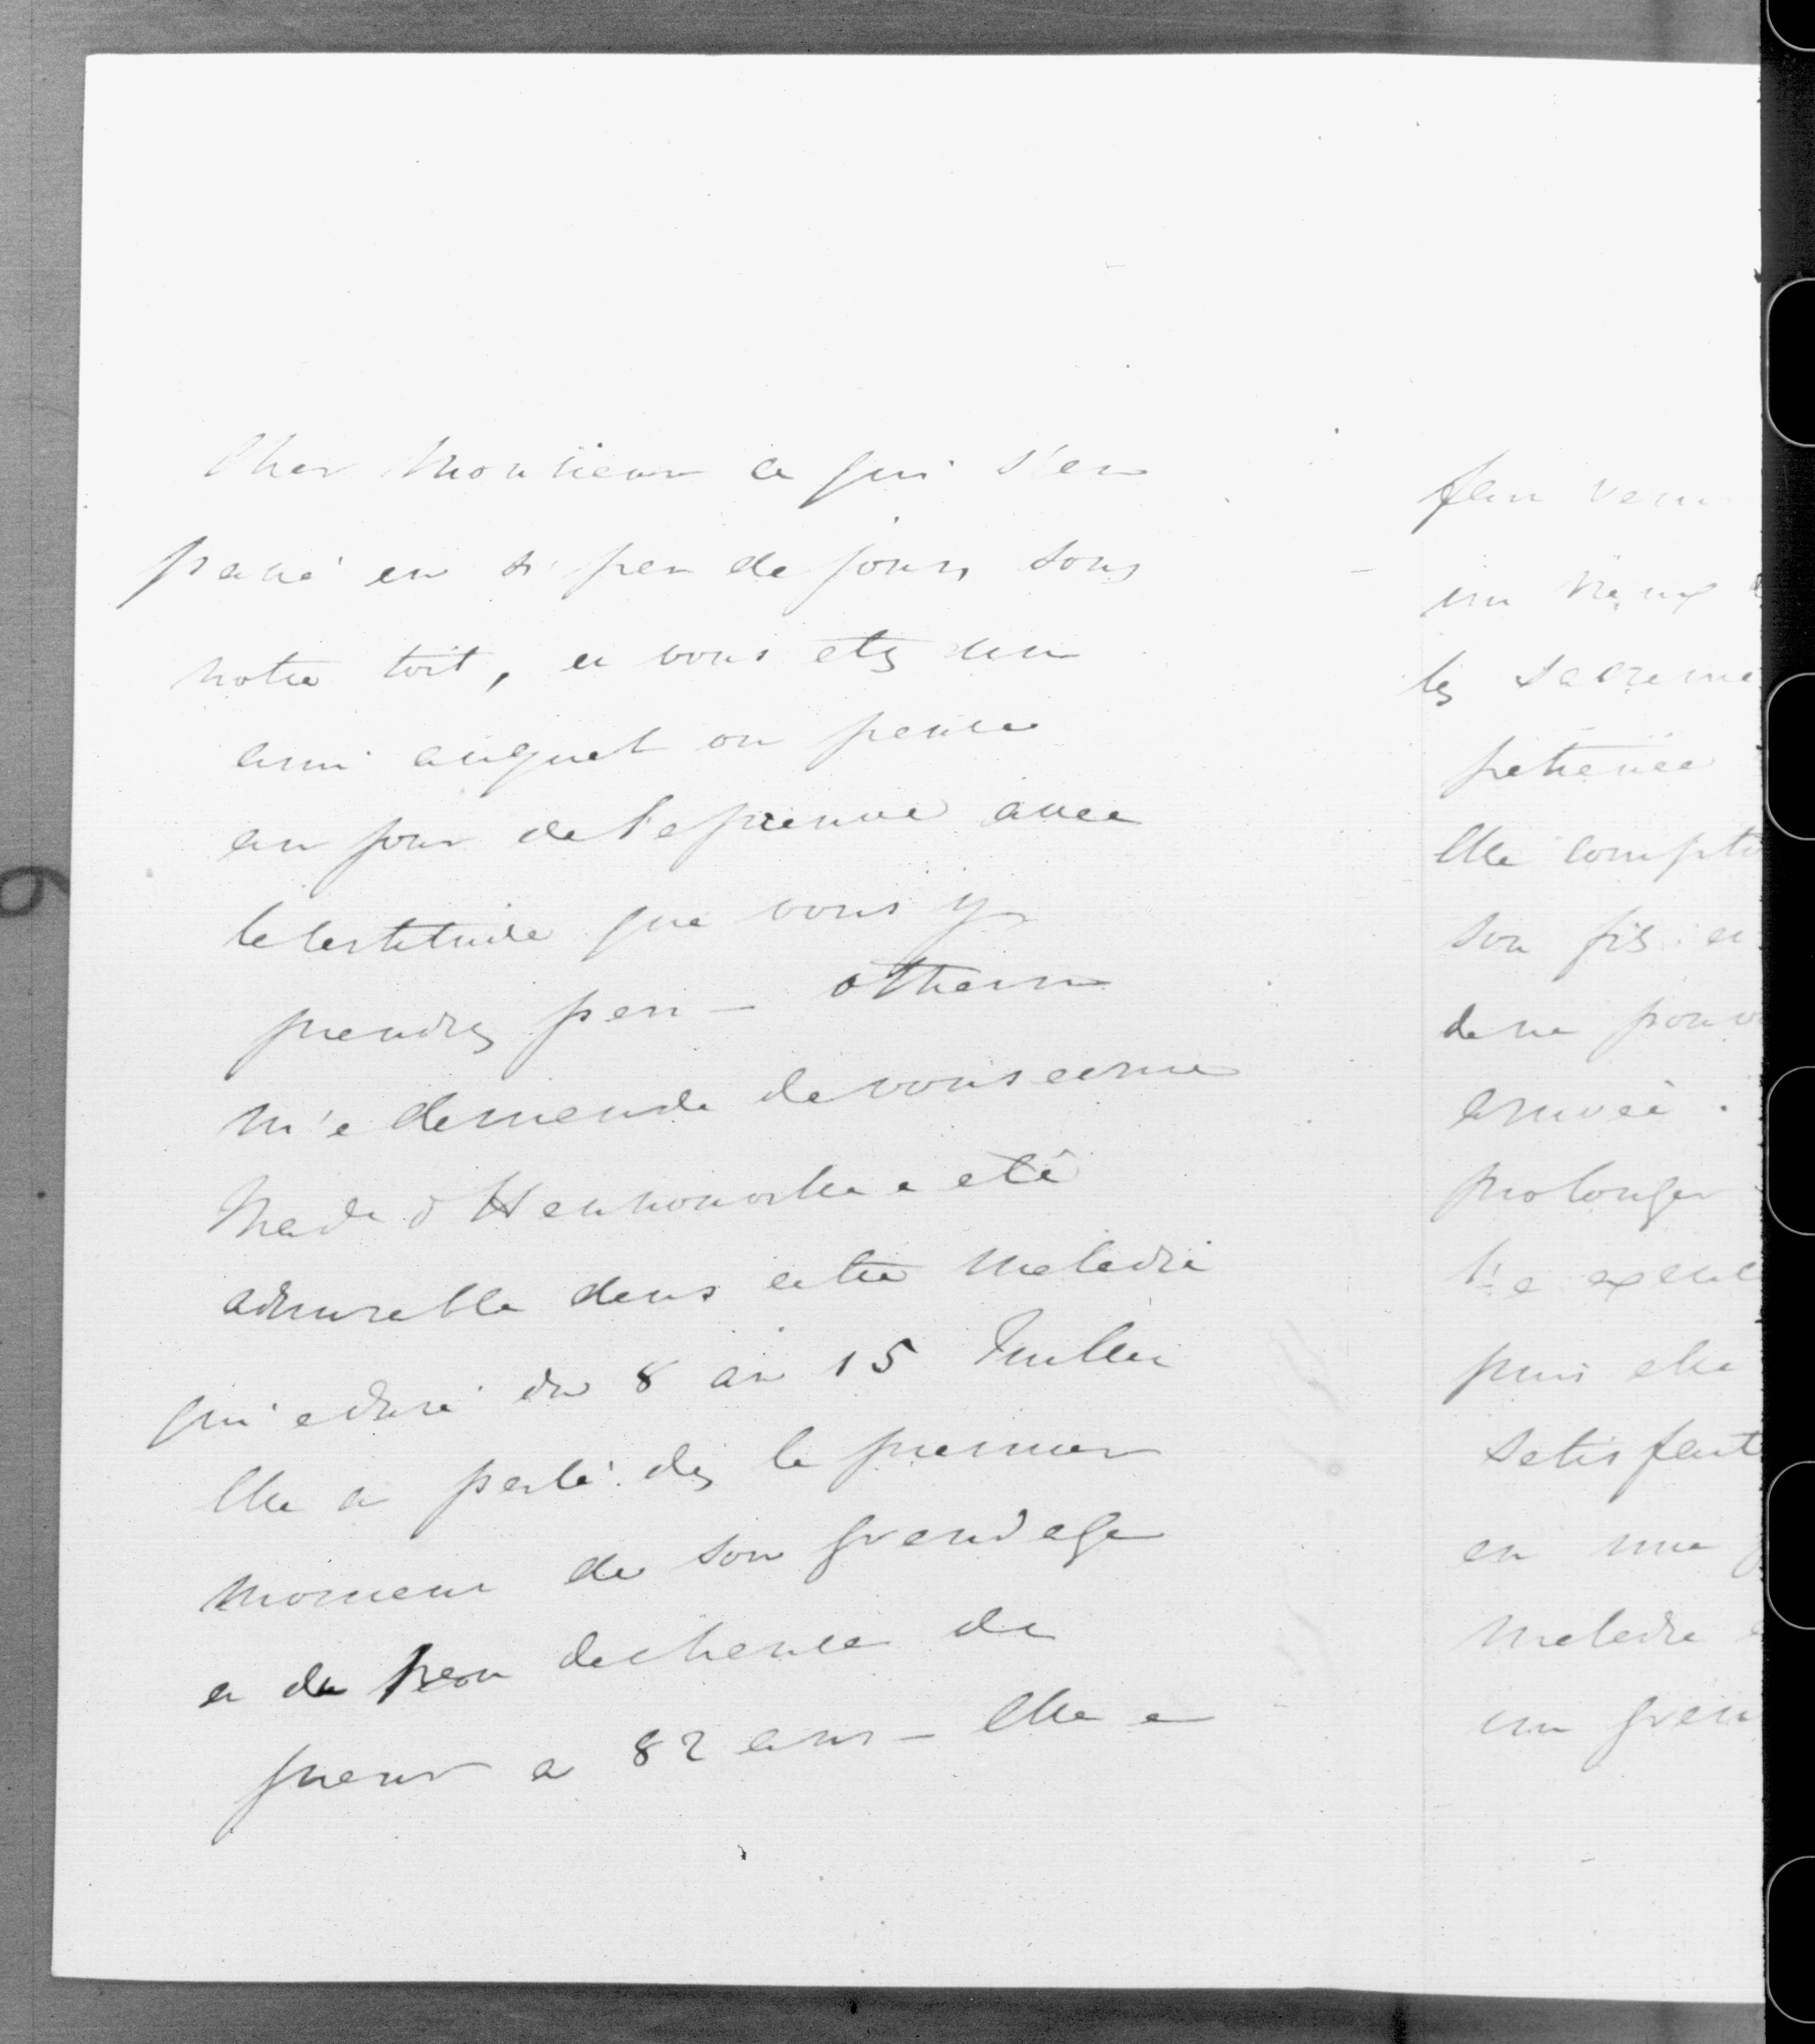 Cher Monsieur ce qui s'en
passé en si peu de jours sous
notre toit, et vous etes un
ami auquel on pense
au jour de l'epreuve avec
la certitude que vous y
prendrez part - Othenin
m'a demandé de vous ecrire
Made d'Haussonville a eté
admirable dans cette maladie
qui a duré du 8 au 15 Juillet
Elle a parlé dès le premier
moment de son grand age
et du peu de chance de
guerir a 82 ans - Elle a
fait venir
un vieux
les sacreme
patience
Elle compt
son fils et
de ne pouv
arrivée.
prolonger
puis elle
satisfait
en une
maladie
un gran